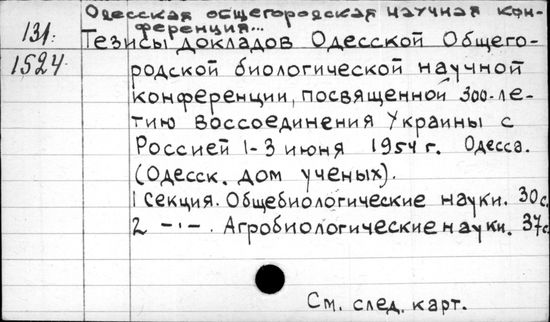 Одесская общегородская научная кон-
ференция...
131.
1524.
Тезисы докладов Одесской Общего-
родской биологической научной
конференции, посвященной 300-ле-
тию воссоединения Украины с
Россией 1-3 июня 1954 г. Одесса.
(Одесск. дом ученых).
1 Секция. Общебиологические науки. 30 с.
2 -"-. Агробиологические науки. 37 с.
См. след. карт.